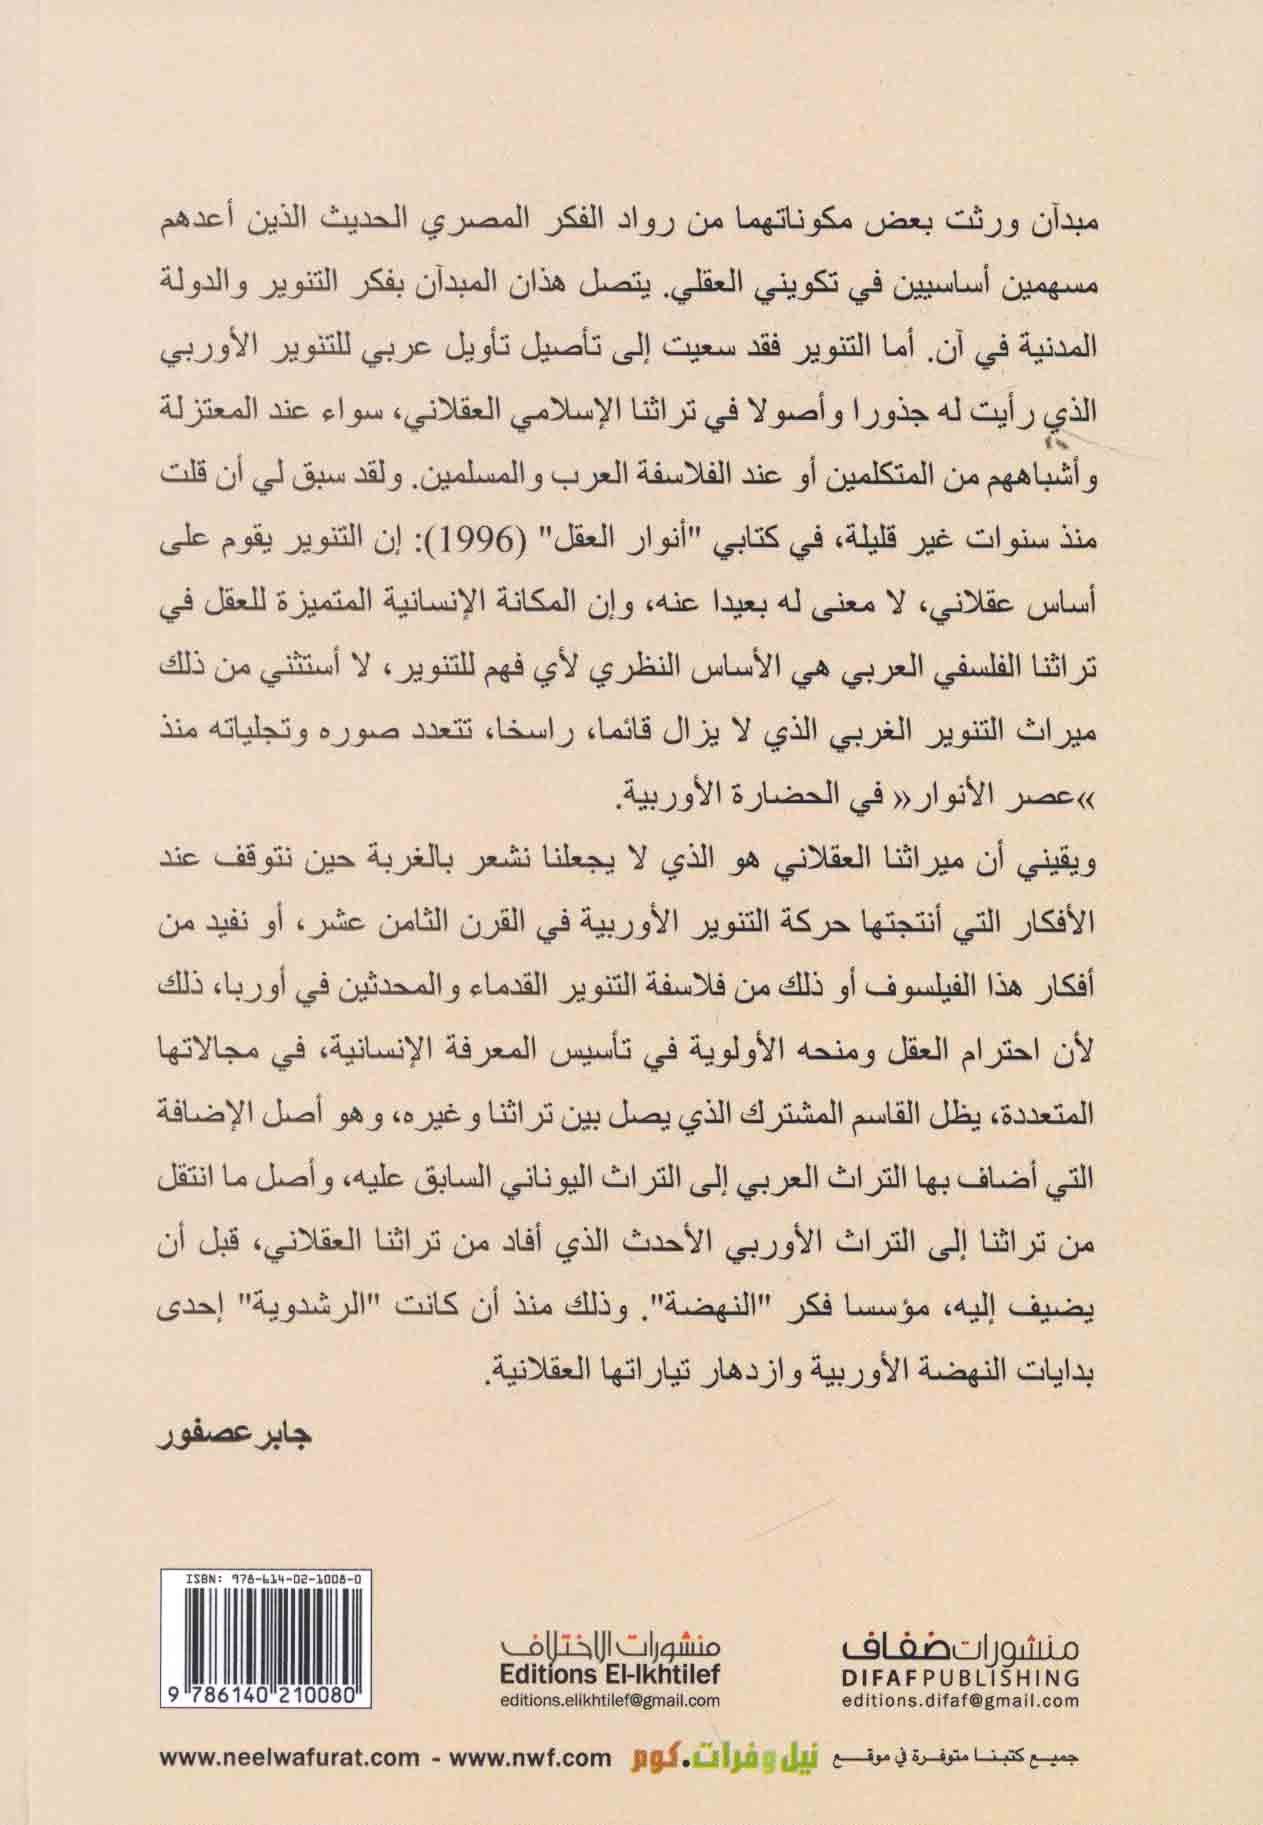 مبدآن ورثت بعض مكوناتهما من رواد الفكر المصري الحديث الذين أعدهم
مسهمين أساسيين في تكويني العقلي. يتصل هذان المبدآن بفكر التنوير والدولة
المدنية في آن. أما التنوير فقد سعيت إلى تأصيل تأويل عربي للتنوير الأوربي
الذي رأيت له جذورا وأصولا في تراثنا الإسلامي العقلاني، سواء عند المعتزلة
وأشباههم من المتكلمين أو عند الفلاسفة العرب والمسلمين. ولقد سبق لي أن قلت
منذ سنوات غير قليلة، في كتابي "أنوار العقل" (1996): إن التنوير يقوم على
أساس عقلاني، لا معنى له بعيدا عنه، وإن المكانة الإنسانية المتميزة للعقل في
تراثنا الفلسفي العربي هي الأساس النظري لأي فهم للتنوير، لا أستثني من ذلك
ميراث التنوير الغربي الذي لا يزال قائما، راسخا، تتعدد صوره وتجلياته منذ
»عصر الأنوار« في الحضارة الأوربية.
ويقيني أن ميراثنا العقلاني هو الذي لا يجعلنا نشعر بالغربة حين نتوقف عند
الأفكار التي أنتجتها حركة التنوير الأوربية في القرن الثامن عشر، أو نفيد من
أفكار هذا الفيلسوف أو ذلك من فلاسفة التنوير القدماء والمحدثين في أوربا، ذلك
لأن احترام العقل ومنحه الأولوية في تأسيس المعرفة الإنسانية، في مجالاتها
المتعددة، يظل القاسم المشترك الذي يصل بين تراثنا وغيره، وهو أصل الإضافة
التي أضاف بها التراث العربي إلى التراث اليوناني السابق عليه، وأصل ما انتقل
من تراثنا إلى التراث الأوربي الأحدث الذي أفاد من تراثنا العقلاني، قبل أن
يضيف إليه، مؤسسا فكر "النهضة". وذلك منذ أن كانت "الرشدوية" إحدى
بدايات النهضة الأوربية وازدهار تياراتها العقلانية.
جابر عصفور
منشورات ضفاف
DIFAF PUBLISHING
editions.difaf@gmail.com
منشورات الاختلاف
Editions El-Ikhtilef
editions.elikhtilef@gmail.com
ISBN: 978-614-02-1008-0
9 786140 210080
جميع كتبنا متوفرة في موقع نيل وفرات.كوم www.neelwafurat.com - www.nwf.com